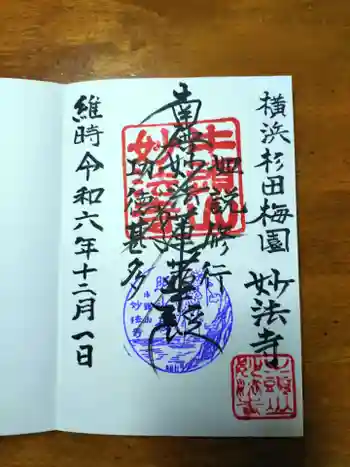 横浜杉田梅園
妙法寺
如説修行
南無妙法蓮華経
功徳甚多
維時令和六年十二月一日
牛頭山
妙法寺
牛頭山
妙法寺